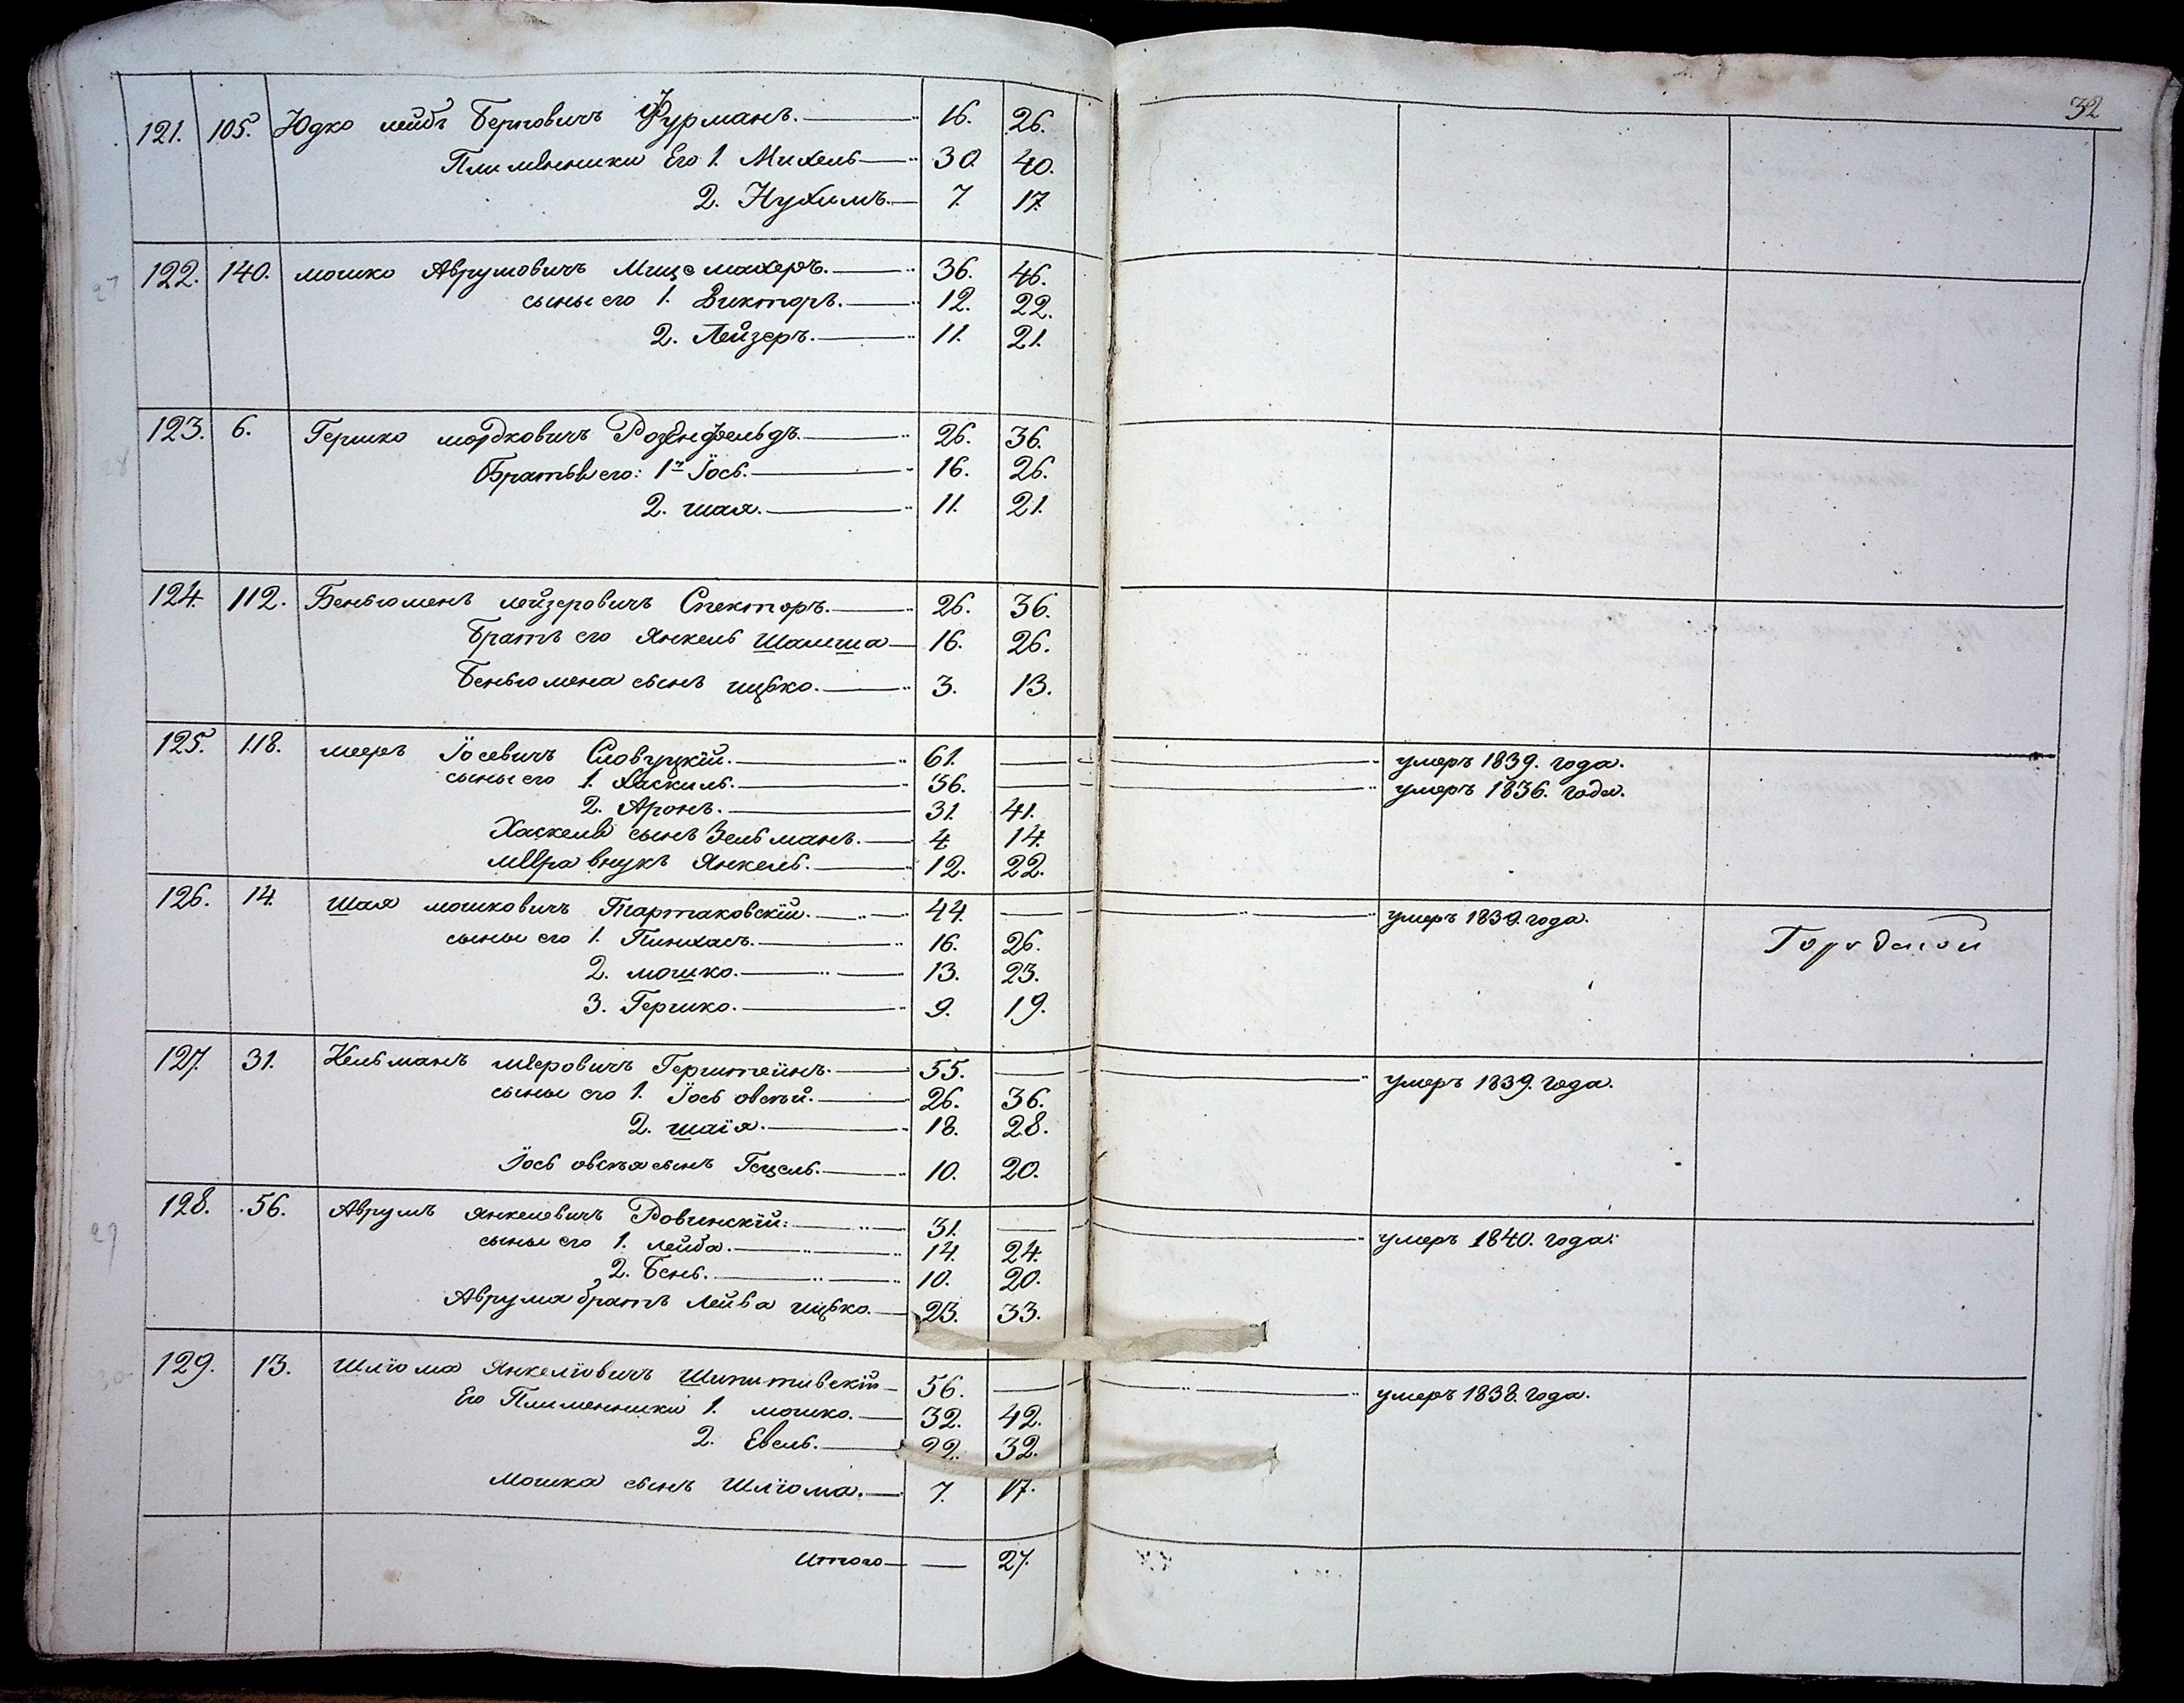 32
121. 105. Юдко лейбъ Берковичъ Фурманъ. 16. 26.
Плимѣнники Его 1. Михель 30. 40.
2. Нухимъ. 7. 17.
122. 140. мошко Аврумовичъ 36. 46.
сыны его 1. Викторъ. 12. 22.
2. Лейзеръ. 11. 21.
123. 6. Гершко мордковичъ Розенфельдъ. 26. 36.
Братья его: 1й Іось. 16. 26.
2. шая. 11. 21.
124. 112. Беньюменъ лейзеровичъ Спекторъ. 26. 36.
Братъ его Янкель Шамша 16. 26.
Беньюмена сынъ ицько. 3. 13.
125. 118. мееръ Іосевичъ 61. — умеръ 1839. года.
сыны его 1. Хаскиль. 36. — умеръ 1836. года.
2. Аронъ. 31. 41.
Хаскеля сынъ Зельманъ. 4. 14.
меера внукъ Янкель. 12. 22.
126. 14. Шая мошковичъ Тартаковскій. 44. — умеръ 1839. года.
Городской
сыны его 1. Пинхасъ. 16. 26.
2. мошко. 13. 23.
3. Гершко. 9. 19.
127. 31. Кельманъ меровичъ Герштейнъ. 55. — умеръ 1839. года.
сыны его 1. Іось овсѣй. 26. 36.
2. шаія. 18. 28.
Іось овсѣя сынъ Гецель. 10. 20.
128. 56. Аврумъ янкелевичъ Ровинскій: 31. — умеръ 1840. года:
сыны его 1. лейба. 14. 24.
2. Бень. 10. 20.
Аврума братъ Лейба ицько. 23. 33.
129. 13. Шліома Янкеліовичъ Шипитивскій 56. — умеръ 1838. года.
Его Плименники 1. мошко. 32. 42.
2. Евель. 22. 32.
Мошка сынъ Шліома. 7. 17.
Итого — 27.